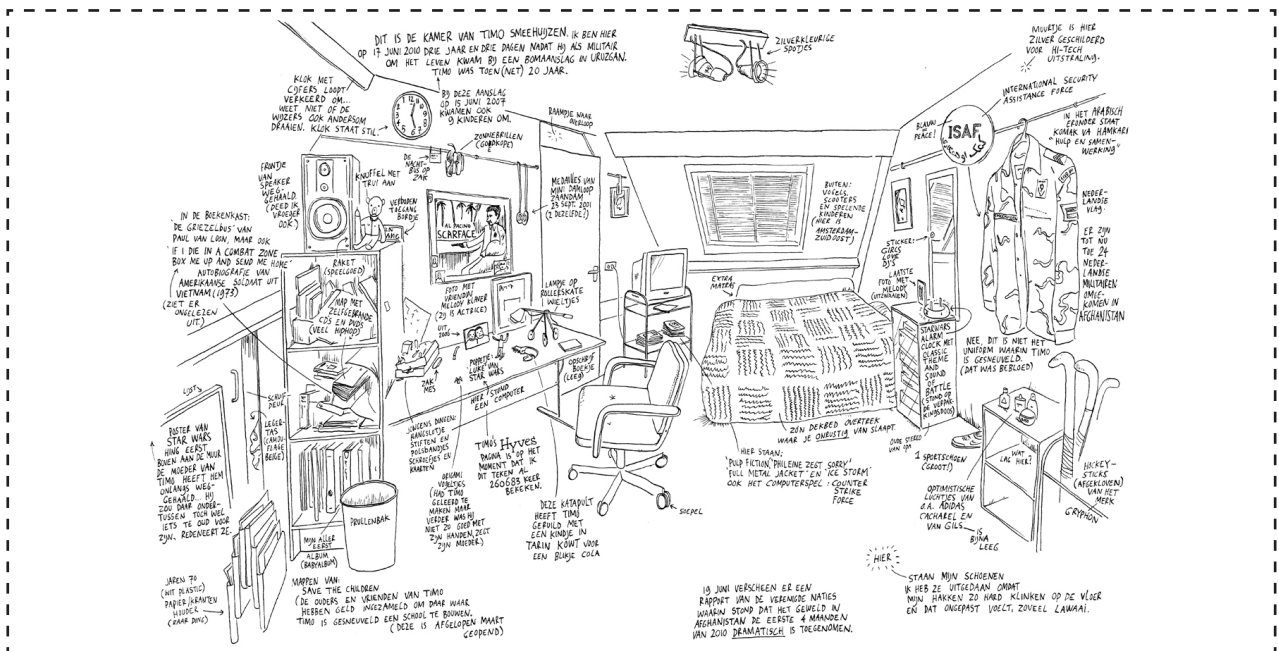 DIT IS DE KAMER VAN TIMO SMEEHUIJZEN. IK BEN HIER
OP 17 JUNI 2010 DRIE JAAR EN DRIE DAGEN NADAT HIJ ALS MILITAIR
OM HET LEVEN KWAM BIJ EEN BOMAANSLAG IN URUZGAN.
TIMO WAS TOEN (NET) 20 JAAR.
BIJ DEZE AANSLAG
OP 15 JUNI 2007
KWAMEN OOK
9 KINDEREN OM.
KLOK MET
CIJFERS LOOPT
VERKEERD OM...
WEET NIET OF DE
WIJZERS OOK ANDERSOM
DRAAIEN. KLOK STAAT STIL.
ZILVERKLEURIGE
SPOTJES
MUURTJE IS HIER
ZILVER GESCHILDERD
VOOR HI-TECH
UITSTRALING.
INTERNATIONAL SECURITY
ASSISTANCE FORCE
BLAUW =
PEACE!
ISAF
IN HET ARABISCH
ERONDER STAAT
KOMAK VA HAMKARI
"HULP EN SAMEN-
WERKING"
RAAMPJE NAAR
OVERLOOP
ZONNEBRILLEN
(GOEDKOPE)
DE
NACHT-
BUS OP
ZAK
FRONTJE
VAN
SPEAKER
WEG-
GEHAALD
(DEED IK
VROEGER
OOK)
KNUFFEL MET
TRUI AAN
VERBODEN
TOEGANG
BORDJE
AL PACINO
SCARFACE
MEDAILLES VAN
MINI DAMLOOP
ZAANDAM
23 SEPT. 2001
(2 DEZELFDE?)
BUITEN:
VOGELS,
SCOOTERS
EN SPELENDE
KINDEREN
(HIER IS
AMSTERDAM-
ZUIDOOST)
STICKER:
GIRLS
LOVE
DJ'S
LAATSTE
FOTO MET
MELODY
(UITZWAAIEN)
NEDER-
LANDSE
VLAG.
ER ZIJN
TOT NU
TOE 24
NEDER-
LANDSE
MILITAIREN
OMGE-
KOMEN IN
AFGHANISTAN
IN DE BOEKENKAST:
'DE GRIEZELBUS' VAN
PAUL VAN LOON, MAAR OOK
'IF I DIE IN A COMBAT ZONE
BOX ME UP AND SEND ME HOME'
AUTOBIOGRAFIE VAN
AMERIKAANSE SOLDAAT UIT
VIETNAM (1973)
(ZIET ER
ONGELEZEN
UIT.)
RAKET
(SPEELGOED)
MAP MET
ZELFGEBRANDE
CDS EN DVDS
(VEEL HIPHOP)
FOTO MET
VRIENDIN
MELODY KLAVER
(ZIJ IS ACTRICE)
LAMPJE OP
ROLLERSKATE
WIELTJES
EXTRA
MATRAS
ZAK
MES
POPPETJE:
LUKE VAN
STAR WARS
HIER STOND
EEN COMPUTER
OPSCHRIJF
BOEKJE
(LEEG)
STARWARS
ALARM
CLOCK MET
CLASSIC
THEME
AND
SOUND
OF
BATTLE
(STOND OP
DE VERPAK-
KINGSDOOS)
NEE, DIT IS NIET HET
UNIFORM WAARIN TIMO
IS GESNEUVELD.
(DAT WAS BEBLOED)
LIJST
SCHUIF-
DEUR
LEGER-
TAS
(CAMOU-
FLAGE
BEIGE)
POSTER VAN
STAR WARS
HING EERST
BOVEN AAN DE MUUR
DE MOEDER VAN
TIMO HEEFT HEM
ONLANGS WEG-
GEHAALD... HIJ
ZOU DAAR ONDER-
TUSSEN TOCH WEL
IETS TE OUD VOOR
ZIJN. REDENEERT ZE.
JONGENS DINGEN:
HANGSLOTJE
STIFTEN EN
POLSBANDJES
SCHROEFJES EN
KAARTEN
ORIGAMI
VOGELTJES
(HAD TIMO
GELEERD TE
MAKEN MAAR
VERDER WAS HIJ
NIET ZO GOED MET
ZIJN HANDEN, ZEGT
ZIJN MOEDER)
TIMO'S Hyves
PAGINA IS OP HET
MOMENT DAT IK
DIT TEKEN AL
260683 KEER
BEKEKEN.
DEZE KATAPULT
HEEFT TIMO
GERUILD MET
EEN KINDJE IN
TARIN KOWT VOOR
EEN BLIKJE COLA
SOEPEL
ZO'N DEKBED OVERTREK
WAAR JE ONRUSTIG VAN SLAAPT.
HIER STAAN:
'PULP FICTION', 'PHILEINE ZEGT SORRY'
'FULL METAL JACKET' EN 'ICE STORM'
OOK HET COMPUTERSPEL: COUNTER
STRIKE
FORCE
OUDE STEREO
VAN OPA
1 SPORTSCHOEN
(GROOT!)
WAT
LAG HIER?
HOCKEY-
STICKS
(AFGEKLOVEN)
VAN HET
MERK
GRYPHON
OPTIMISTISCHE
LUCHTJES VAN
O.A. ADIDAS
CACHAREL EN
VAN GILS.
IS
BIJNA
LEEG
PRULLENBAK
MIJN ALLER
EERST
ALBUM
(BABYALBUM)
JAREN 70
(WIT PLASTIC)
PAPIER/KRANTEN
HOUDER
(RAAR DING)
MAPPEN VAN:
SAVE THE CHILDREN
(DE OUDERS EN VRIENDEN VAN TIMO
HEBBEN GELD INGEZAMELD OM DAAR WAAR
TIMO IS GESNEUVELD EEN SCHOOL TE BOUWEN.
(DEZE IS AFGELOPEN MAART
GEOPEND)
19 JUNI VERSCHEEN ER EEN
RAPPORT VAN DE VERENIGDE NATIES
WAARIN STOND DAT HET GEWELD IN
AFGHANISTAN DE EERSTE 4 MAANDEN
VAN 2010 DRAMATISCH IS TOEGENOMEN.
HIER
STAAN MIJN SCHOENEN
IK HEB ZE UITGEDAAN OMDAT
MIJN HAKKEN ZO HARD KLINKEN OP DE VLOER
EN DAT ONGEPAST VOELT, ZOVEEL LAWAAI.